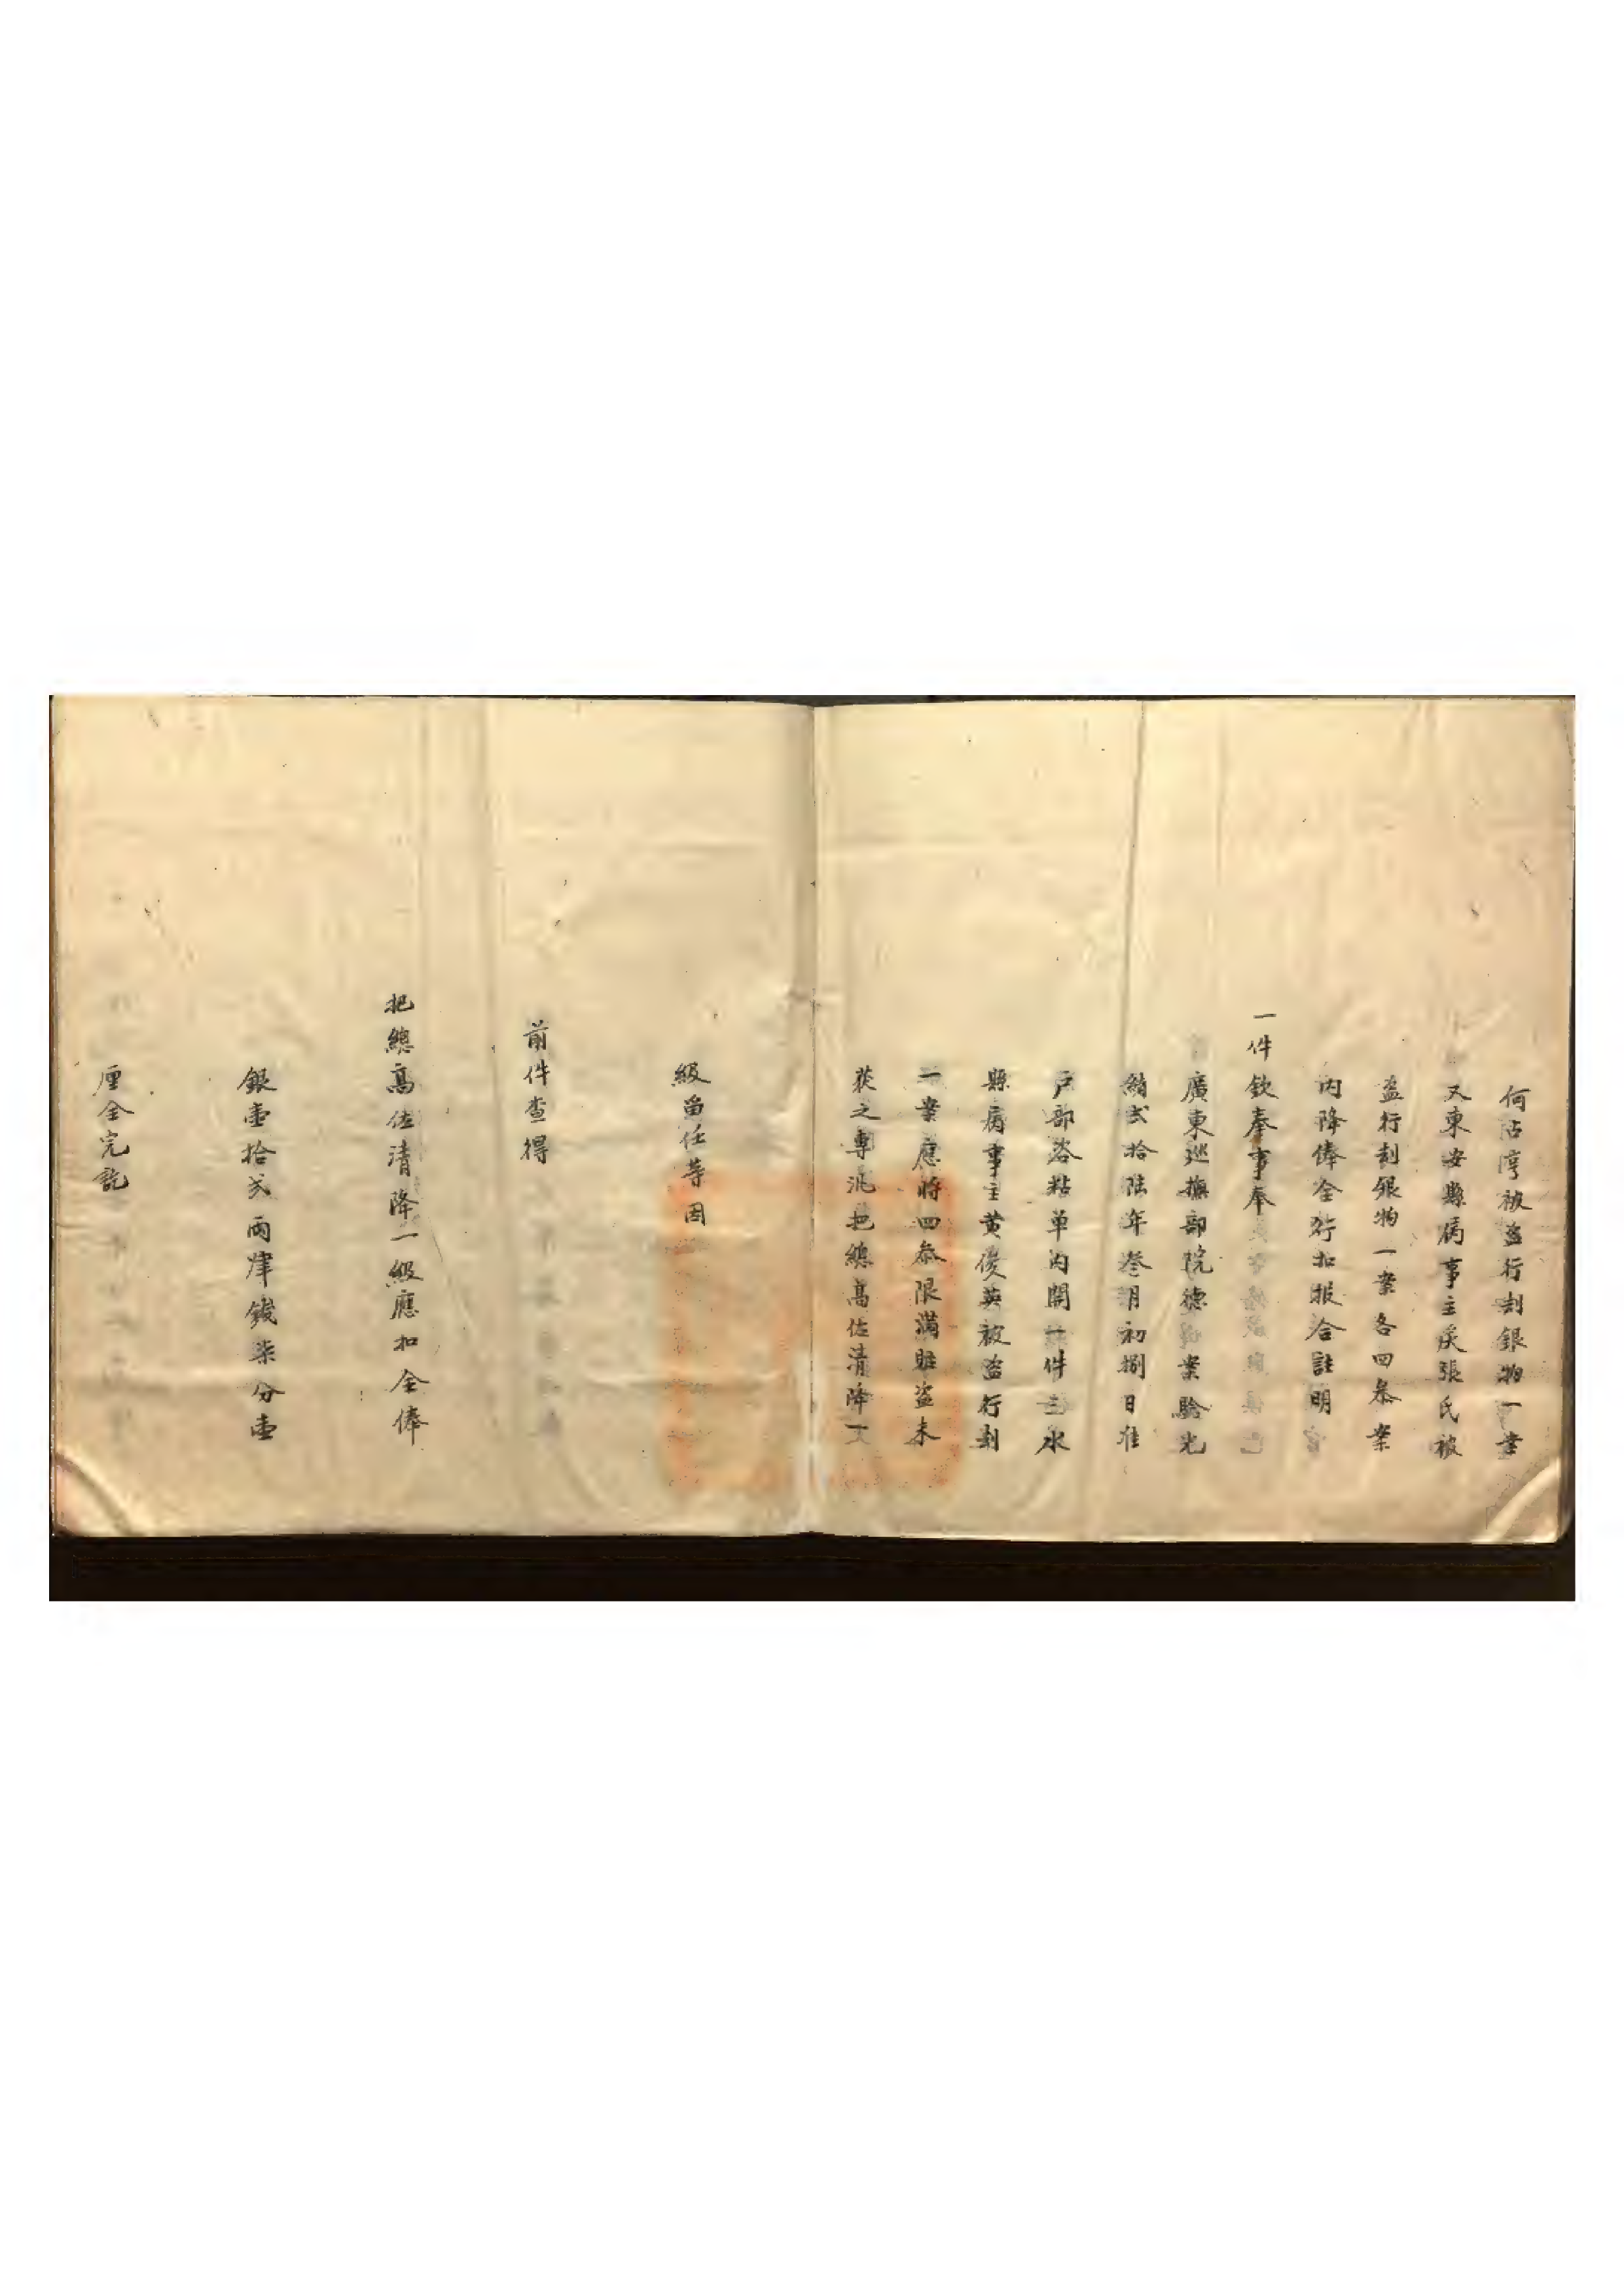 何沾淳被盗行刦銀物一案
又東安縣屬事主戾張氏被
盗行刦銀物一案各四叅案
内降俸全行扣報合註明
一件欽奉事奉
廣東巡撫部院德案驗光
緒弍拾陸年叁月初捌日准
戶部咨粘单内開一件三水
縣屬事主黄優英被盗行刦
一案應將四叅限滿賍盗未
获之專汛把總髙佐清降一
級畱任等因
前件查得
把總髙佐清降一級應扣全俸
銀壹拾弍兩肆錢柒分壹
厘全完訖